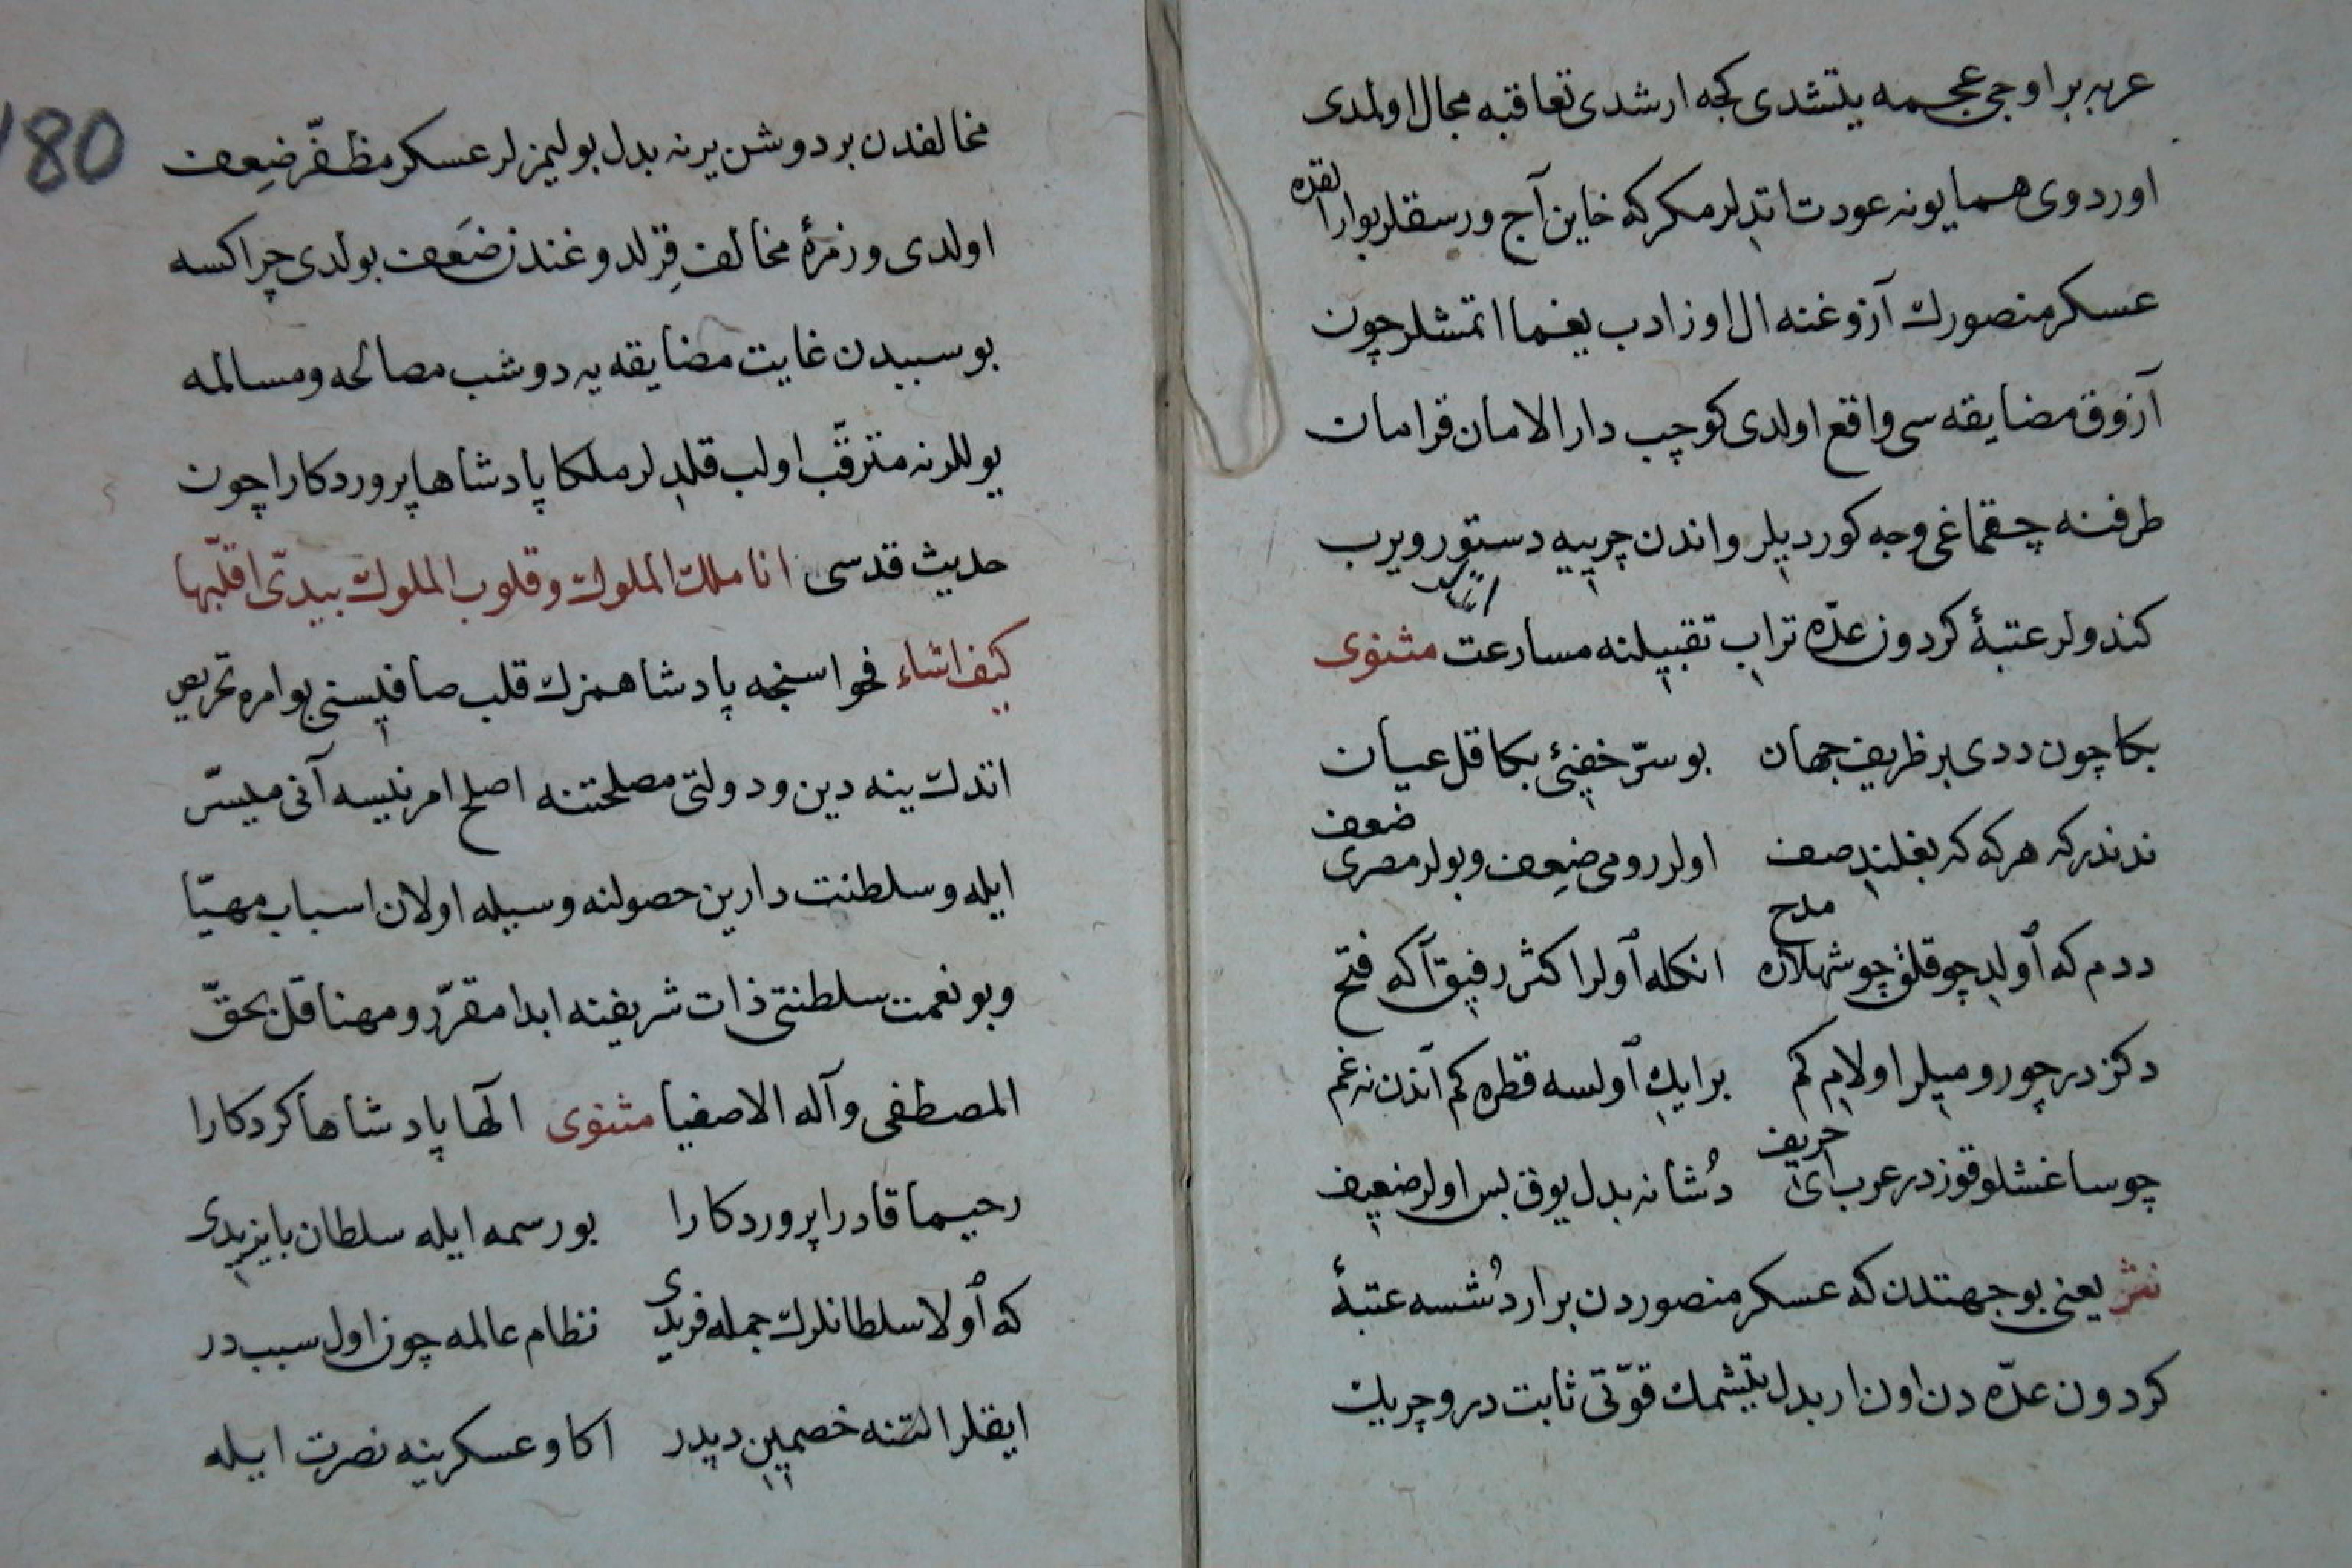 عربه بر اوجی عجمه یتشدی کجه ارشدی تعاقبه مجال اولمدی
اوردوی همایونه عودت اتدلر مکر که خاین آج ورسقلر بو ارالقده
عسکر منصورك آزوغنه ال اوزادب یغما اتمشلر چون
آزوق مضایقه سی واقع اولدی کوچب دار الامان قرامان
طرفنه چقماغی وجه کوردیلر واندن چرییه دستور ویرب
کندولر عتبۀ کردون عدّه تراب تقبیلنه مسارعت اتدیلر مثنوی
بکا چون ددی بر ظریف جهان بو سرّ خفیئ بکا قل عیان
ندندر که هرکه که بغلند صف اولر رومی ضعف وبولر مصری ضعف
ددم که آولد چوقلق چو شهلاره مدح انکله آولر اکثر رفیق آکه فتح
دکز در چو رومیلر اولام کم بر ایك آولسه قطره کم آندن نه غم
چو ساغشلو قوز در عرب ای حریف دُشانه بدل یوق بس اولر ضعیف
نثر یعنی بو جهتدن که عسکر منصوردن بر ار دُشسه عتبۀ
کردون عدّه دن اون ار بدل یتیشمك قوّتی ثابت در وچریك
180
مخالفدن بر دوشن یرنه بدل بولیمزلر عسکر مظفّر ضِعف
اولدی وزمرۀ مخالف قِرلدوغندن ضَعف بولدی چراکسه
بو سببدن غایت مضایقه یه دوشب مصالحه ومسالمه
یوللرنه مترقّب اولب قلدلر ملکا پادشاها پروردکارا چون
حدیث قدسی انا ملك الملوك وقلوب الملوك بیدیّ اقلّبها
کیف اشاء فحواسنجه پادشاهمزك قلب صافیسنی بو امره تحریص
اتدك ینه دین ودولتی مصلحتنه اصلح امر نیسه آنی میسّر
ایله وسلطنت دارین حصولنه وسیله اولان اسباب مهیّا
وبو نعمت سلطنتی ذات شریفنه ابدا مقرّر ومهنا قل بحقّ
المصطفی وآله الاصفیا مثنوی الٓها پادشاها کردکارا
رحیما قادرا پروردکارا بو رسمه ایله سلطان بایزیدی
که آولا سلطانلرك جمله فریدی نظام عالمه چون اول سبب در
ایقلر التنه خصمین دیدر اکا وعسکرینه نصرت ایله